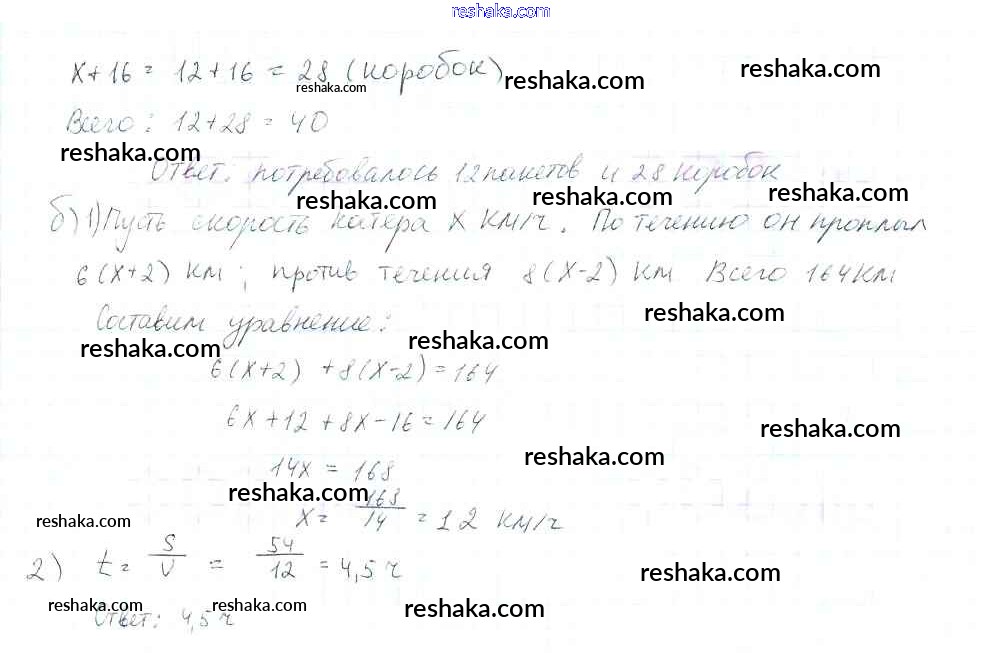 reshaka.com
x+16 = 12+16 = 28 (коробок)
reshaka.com
reshaka.com
reshaka.com
Всего: 12+28 = 40
reshaka.com
Ответ: потребовалось 12 пакетов и 28 коробок
reshaka.com
reshaka.com
reshaka.com
б) 1) Пусть скорость катера x км/ч. По течению он проплыл
6(x+2) км; против течения 8(x-2) км Всего 164 км
reshaka.com
Составим уравнение:
reshaka.com
reshaka.com
6(x+2) + 8(x-2) = 164
6x+12+8x-16 = 164
reshaka.com
reshaka.com
14x = 168
reshaka.com
x = 168/14 = 12 км/ч
reshaka.com
2) t = S/V = 54/12 = 4,5 ч
reshaka.com
reshaka.com
reshaka.com
reshaka.com
Ответ: 4,5 ч